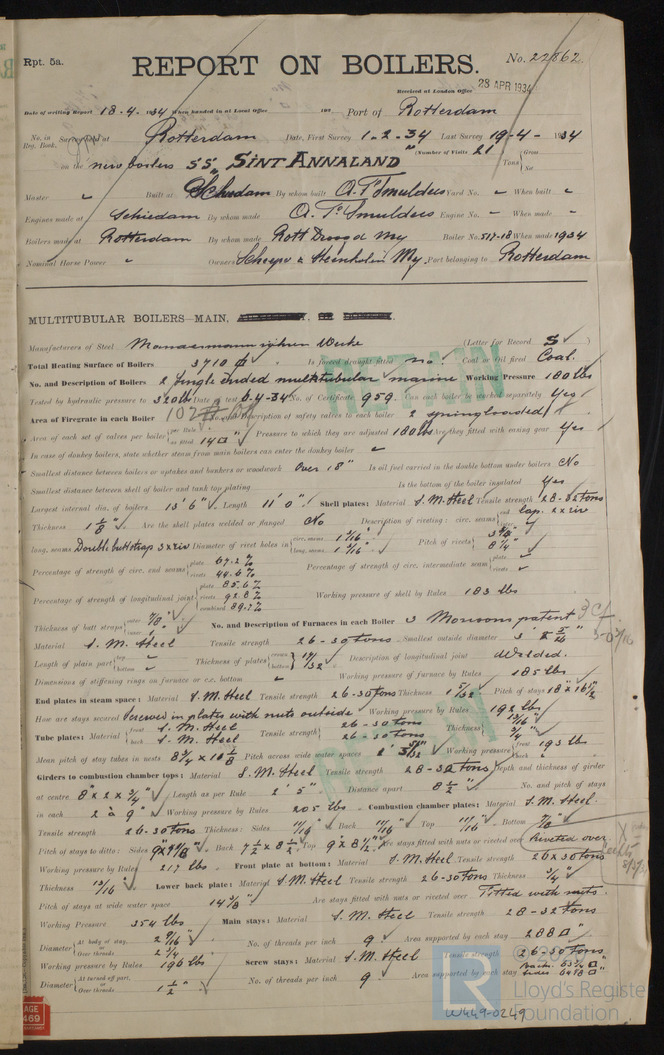 Rpt. 5a.
REPORT ON BOILERS.
No. 22862.
Received at London Office 28 APR 1934
Date of writing Report 18-4-34 When handed in at Local Office 192 Port of Rotterdam
No. in Reg. Book. Survey held at Rotterdam Date, First Survey 1-2-34 Last Survey 19-4-1934
on the new boilers S.S. "SINT ANNALAND" (Number of Visits 21) Tons Gross Net
Master " Built at Schiedam By whom built A. F. Smulders Yard No. " When built "
Engines made at Schiedam By whom made A. F. Smulders Engine No. " When made "
Boilers made at Rotterdam By whom made Rott Droogd My Boiler No. 517-18 When made 1934
Nominal Horse Power " Owners Port belonging to Rotterdam
MULTITUBULAR BOILERS—MAIN,
Manufacturers of Steel (Letter for Record S)
Total Heating Surface of Boilers 3710 Is forced draught fitted no. Coal or Oil fired Coal.
No. and Description of Boilers 2 Single ended multitubular marine Working Pressure 180 lbs
Tested by hydraulic pressure to 320 lbs Date of test 6-4-34 No. of Certificate 959. Can each boiler be worked separately Yes
Area of Firegrate in each Boiler No. and Description of safety valves to each boiler 2 spring loaded
Area of each set of valves per boiler per Rule as fitted 14 Pressure to which they are adjusted 180 lbs Are they fitted with easing gear Yes
In case of donkey boilers, state whether steam from main boilers can enter the donkey boiler "
Smallest distance between boilers or uptakes and bunkers or woodwork Over 18" Is oil fuel carried in the double bottom under boilers No
Smallest distance between shell of boiler and tank top plating Is the bottom of the boiler insulated Yes
Largest internal dia. of boilers 13' 6" Length 11' 0" Shell plates: Material S. M. Steel Tensile strength 28-32 tons
Thickness 1 1/8" Are the shell plates welded or flanged No Description of riveting: circ. seams end lap. 2 x riv
long. seams Double buttstrap 3 x riv Diameter of rivet holes in circ. seams 1 3/16" long. seams 1 3/16" Pitch of rivets 8 1/4"
Percentage of strength of circ. end seams plate 67.2 % rivets 44.6 % Percentage of strength of circ. intermediate seam plate rivets
Percentage of strength of longitudinal joint plate 85.6 % rivets 92.8 % combined 89.7 % Working pressure of shell by Rules 183 lbs
Thickness of butt straps outer 7/8" inner No. and Description of Furnaces in each Boiler 3 Morisons patent
Material S. M. Steel Tensile strength 26-30 tons Smallest outside diameter
Length of plain part top bottom Thickness of plates crown bottom 17/32 Description of longitudinal joint Welded.
Dimensions of stiffening rings on furnace or c.c. bottom Working pressure of furnace by Rules 185 lbs
End plates in steam space: Material S. M. Steel Tensile strength 26-30 tons Thickness 1 5/32 Pitch of stays 18" x 16 1/2
How are stays secured Screwed in plates with nuts outside Working pressure by Rules 192 lbs
Tube plates: Material front S. M. Steel back S. M. Steel Tensile strength 26-30 tons 26-30 tons Thickness 13/16" 3/4"
Mean pitch of stay tubes in nests 8 3/4 x 10 1/8 Pitch across wide water spaces Working pressure front 193 lb back
Girders to combustion chamber tops: Material S. M. Steel Tensile strength 28-32 tons Depth and thickness of girder
at centre 8" x 2 x 3/4" Length as per Rule 2' 5" Distance apart 8 1/2" No. and pitch of stays
in each 2 à 9" Working pressure by Rules 205 lbs Combustion chamber plates: Material S. M. Steel.
Tensile strength 26-30 tons Thickness: Sides 11/16" Back 11/16" Top 11/16" Bottom 7/8"
Pitch of stays to ditto: Sides Back 7 1/2 x 8 1/2 Top 9 x 8 1/2" Are stays fitted with nuts or riveted over Riveted over
Working pressure by Rules 217 lbs. Front plate at bottom: Material S. M. Steel Tensile strength 26 x 30 tons
Thickness 13/16" Lower back plate: Material S. M. Steel Tensile strength 26-30 tons Thickness 3/4"
Pitch of stays at wide water space 14 3/8" Are stays fitted with nuts or riveted over Fitted with nuts.
Working Pressure 354 lbs Main stays: Material S. M. Steel Tensile strength 28-32 tons
Diameter At body of stay, or Over threads 2 9/16" 2 3/4" No. of threads per inch 9 Area supported by each stay 288 □"
Working pressure by Rules 196 lbs Screw stays: Material S. M. Steel Tensile strength 26-30 tons
Diameter At turned off part, or Over threads 1 1/2" No. of threads per inch 9 Area supported by each stay
PAGE 469
© Lloyd's Register Foundation
W449-0249